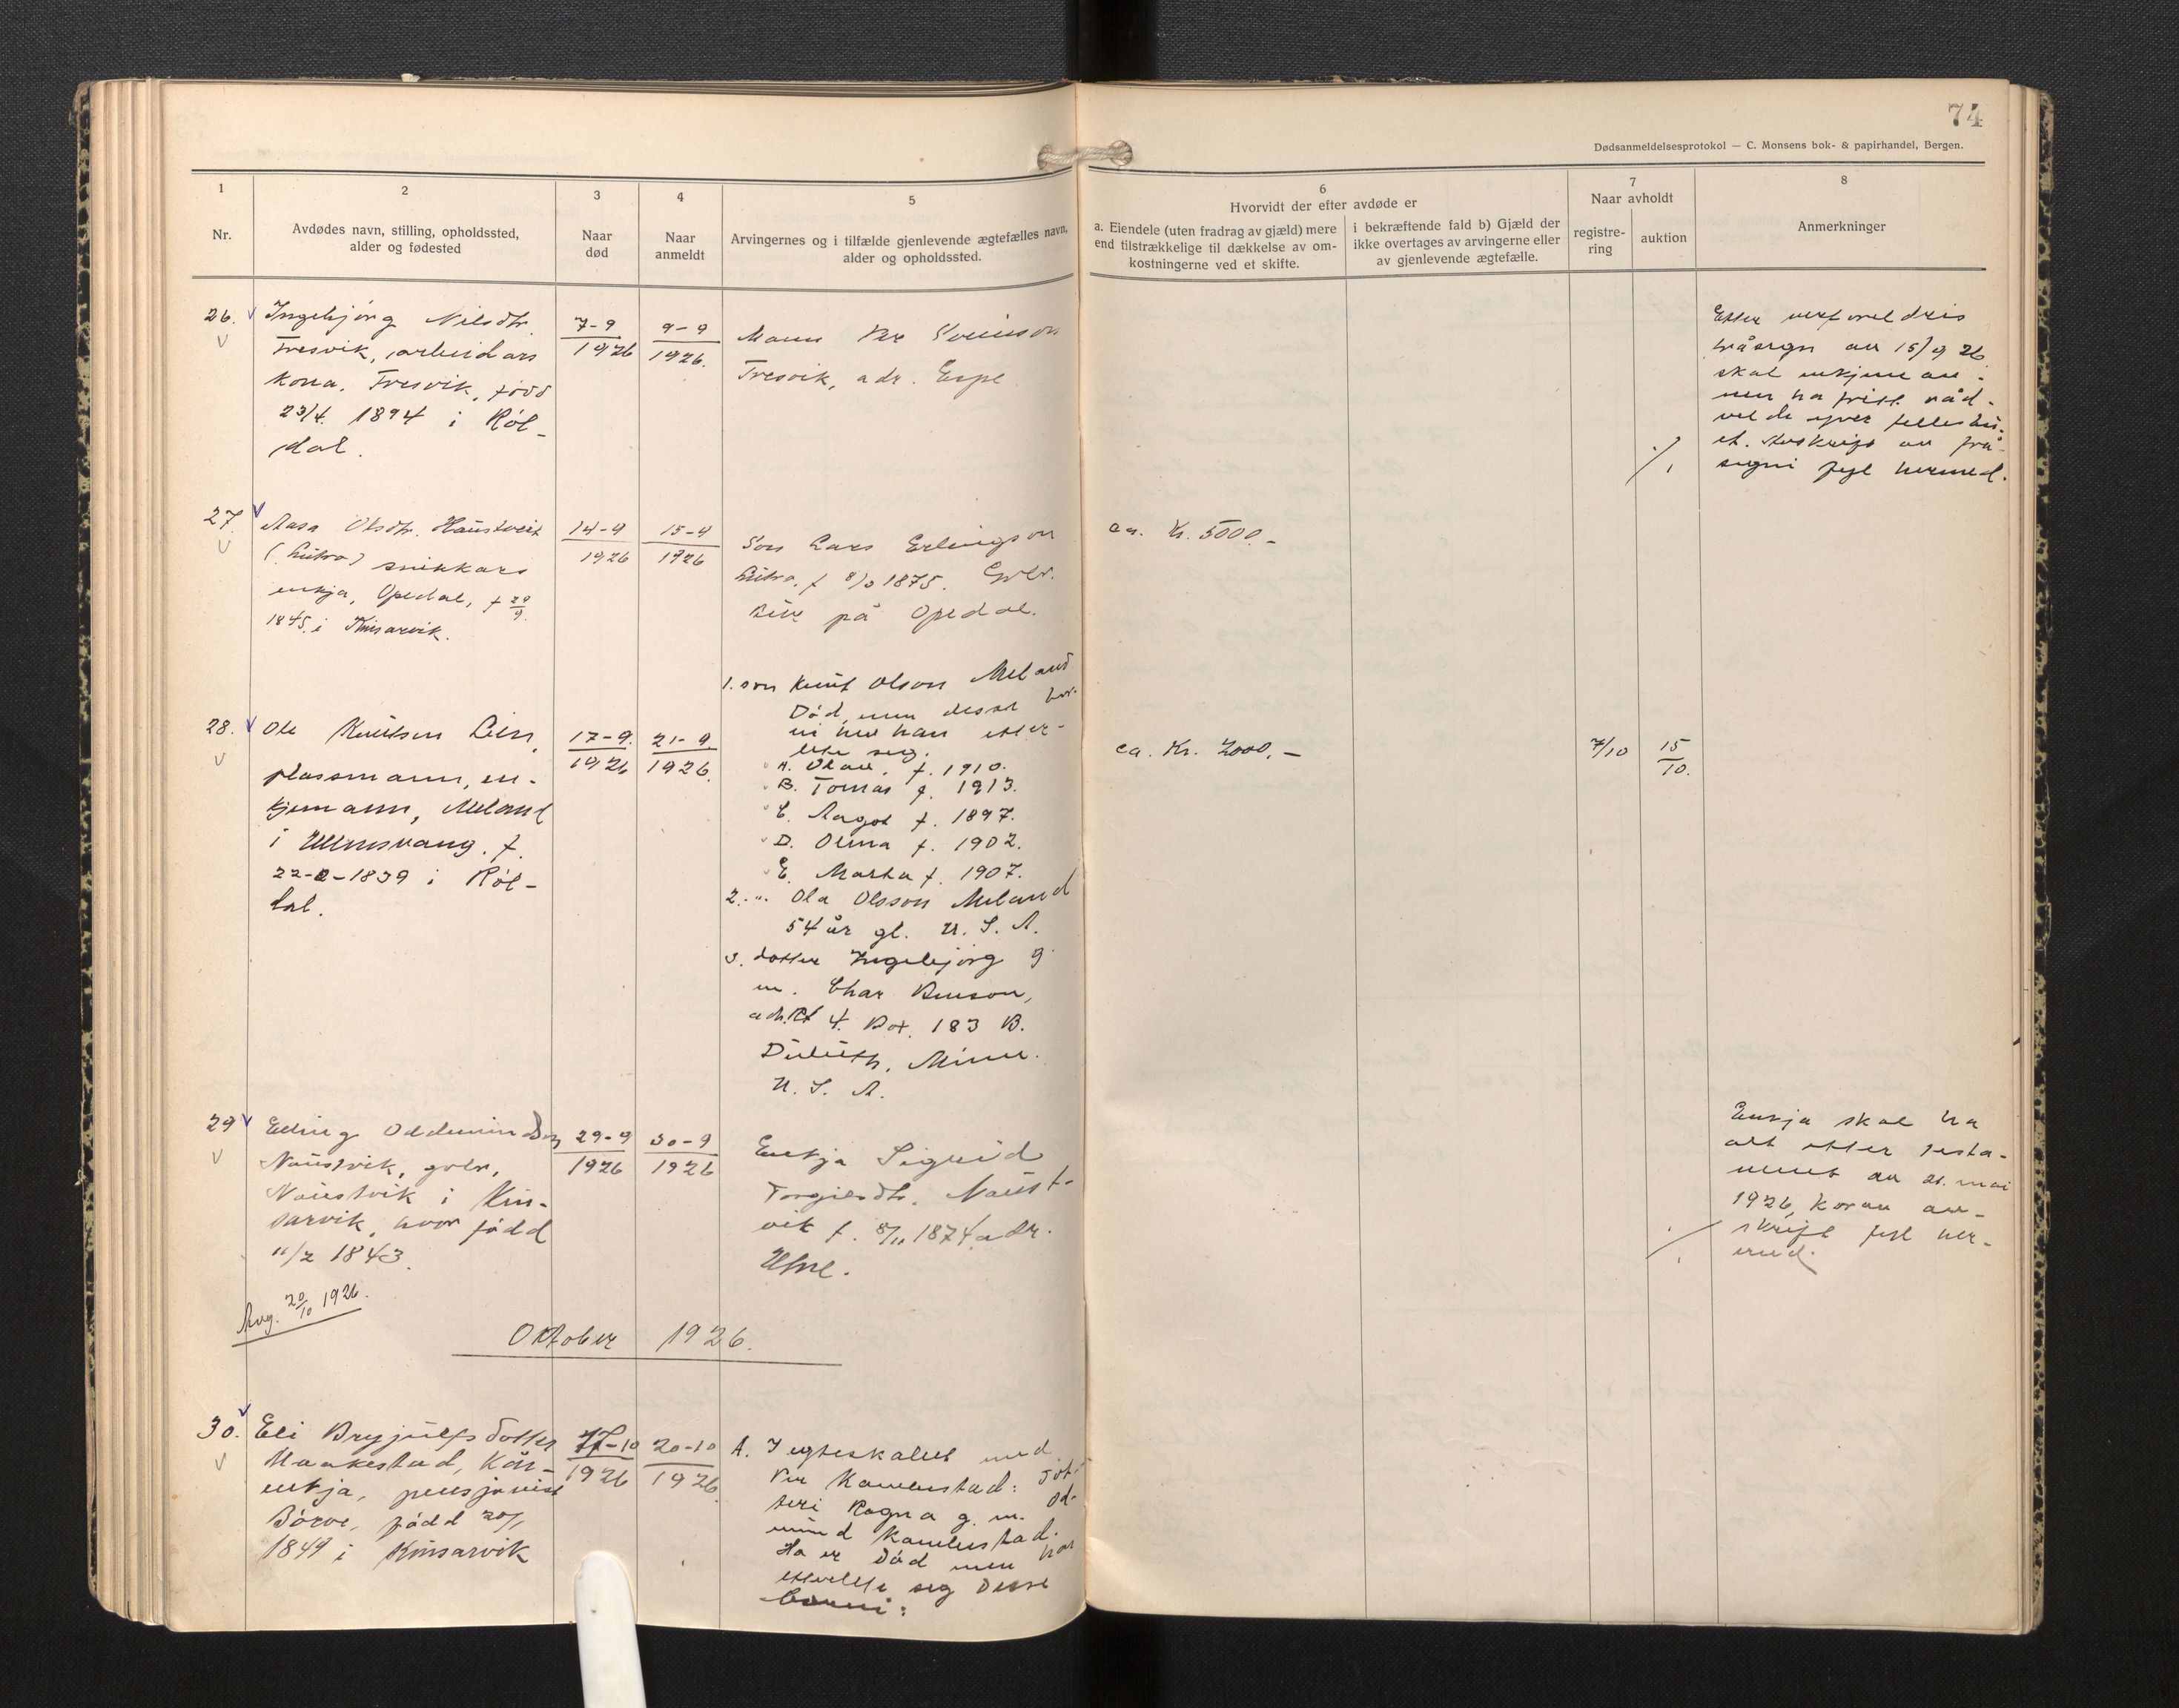 74
Dødsanmeldelsesprotokol — C. Monsens bok- & papirhandel, Bergen.
1
Nr.
2
Avdødes navn, stilling, opholdssted,
alder og fødested
3
Naar
død
4
Naar
anmeldt
5
Arvingernes og i tilfælde gjenlevende ægtefælles navn,
alder og opholdssted.
6
Hvorvidt der efter avdøde er
a. Eiendele (uten fradrag av gjæld) mere
end tilstrækkelige til dækkelse av om-
kostningerne ved et skifte.
i bekræftende fald b) Gjæld der
ikke overtages av arvingerne eller
av gjenlevende ægtefælle.
7
Naar avholdt
registre-
ring
auktion
8
Anmerkninger
26.
Ingebjörg Nilsdtr.
Tresvik, arbeidars
kona, Tresvik, född
23/4 1894 i Röl-
dal.
7-9
1926
9-9
1926.
Mann Per Sveinson
Tresvik, adr. Espe
Etter
av 15/9 26
skal enkjemannen
ha
yver felles
et. Avskrift av frå-
segni fyl hermed.
27
Aasa Olsdtr. Haustveit
(Lutro) snikkars
enkja, Opedal, f 29/9
1845 i Kinsarvik.
14-9
1926
15-9
1926
Son Lars Erlingson
Lutro, f 8/2 1875. Gvbr.
Bur på Opedal.
ca. Kr. 5000.-
28.
Ole Knutsen Lien,
plassmann, en-
kjemann, Meland
i Ullensvang. f.
22-2-1839 i Röl-
dal.
17-9.
1926
21-9.
1926.
1. son Knut Olson Meland
Död, men desse bor-
ni hev han etter-
late seg.
A. Olav, f. 1910.
B. Tomas f. 1913.
C. Aagot f. 1897.
D. Olina f. 1902.
E. Marta f. 1907.
2. " Ola Olsson Meland
54 år gl. U. S. A.
3. dotter Ingebjörg g.
m. Char Benson,
adr. Rt 4. Box. 183 B.
Duluth, Minn.
U. S. A.
ca. Kr. 2000.-
7/10
15/10.
29
Elling Oddmundson
Naustvik, gvbr,
Naustvik i Kin-
sarvik, hvor född
11/2 1843.
29-9
1926
30-9
1926
Enkja Sigrid
Torgilsdtr. Naust-
vik f. 8/11 1874 adr.
Utne.
Enkja skal ha
alt etter testa-
ment av 21. mai
1926, korav av-
skrift fyl her-
med.
Avg. 20/10 1926.
Oktober 1926.
30.
Eli Brynjulfsdotter
Maakestad, Kår-
enkja, pensjonist
Börve, född 20/1
1849 i Kinsarvik
17-10
1926
20-10
1926.
A. I egteskabet med
Per Kambestad: Dot-
teri Ragna g. m. Od-
mund Kambestad.
Ho er död men har
etterlete seg desse
borni: